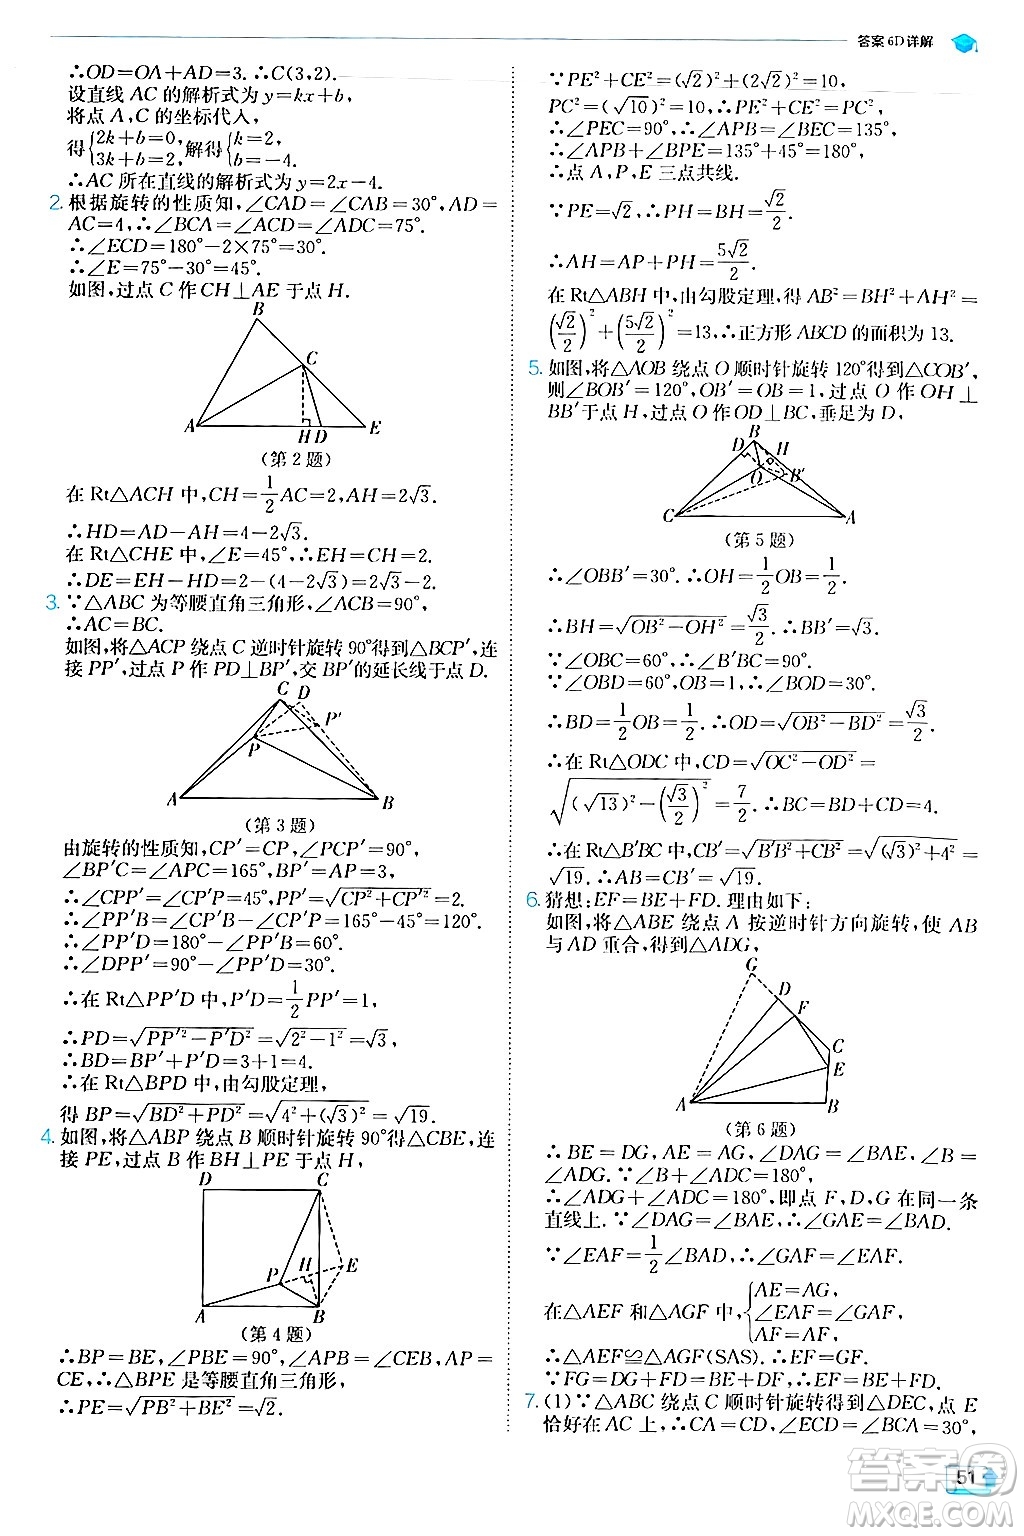 答案 6D 详解
∴OD=OA+AD=3. ∴C(3,2).
设直线 AC 的解析式为 y=kx+b,
将点 A,C 的坐标代入,
得{2k+b=0, 3k+b=2,解得{k=2, b=-4.
∴AC 所在直线的解析式为 y=2x-4.
2. 根据旋转的性质知,∠CAD=∠CAB=30°,AD=
AC=4,∴∠BCA=∠ACD=∠ADC=75°.
∴∠ECD=180°-2×75°=30°.
∴∠E=75°-30°=45°.
如图,过点 C 作 CH⊥AE 于点 H.
B
C
A
H D
E
(第 2 题)
在 Rt△ACH 中,CH=1/2AC=2,AH=2√3.
∴HD=AD-AH=4-2√3.
在 Rt△CHE 中,∠E=45°,∴EH=CH=2.
∴DE=EH-HD=2-(4-2√3)=2√3-2.
3. ∵△ABC 为等腰直角三角形,∠ACB=90°,
∴AC=BC.
如图,将△ACP 绕点 C 逆时针旋转 90°得到△BCP′,连
接 PP′,过点 P 作 PD⊥BP′,交 BP′的延长线于点 D.
C
D
P′
P
A
B
(第 3 题)
由旋转的性质知,CP′=CP,∠PCP′=90°,
∠BP′C=∠APC=165°,BP′=AP=3,
∴∠CPP′=∠CP′P=45°,PP′=√(CP²+CP′²)=2.
∴∠PP′B=∠BP′C-∠CP′P=165°-45°=120°.
∴∠PP′D=180°-∠PP′B=60°.
∴∠DPP′=90°-∠PP′D=30°.
∴在 Rt△PP′D 中,P′D=1/2PP′=1,
∴PD=√(PP′²-P′D²)=√(2²-1²)=√3.
∴BD=BP′+P′D=3+1=4.
∴在 Rt△BPD 中,由勾股定理,
得 BP=√(BD²+PD²)=√(4²+(√3)²)=√19.
4. 如图,将△ABP 绕点 B 顺时针旋转 90°得△CBE,连
接 PE,过点 B 作 BH⊥PE 于点 H,
D
C
H
E
P
A
B
(第 4 题)
∴BP=BE,∠PBE=90°,∠APB=∠CEB,AP=
CE,∴△BPE 是等腰直角三角形,
∴PE=√(PB²+BE²)=√2.
∵PE²+CE²=(√2)²+(2√2)²=10,
PC²=(√10)²=10,∴PE²+CE²=PC²,
∴∠PEC=90°,∴∠APB=∠BEC=135°,
∴∠APB+∠BPE=135°+45°=180°,
∴点 A,P,E 三点共线.
∵PE=√2,∴PH=BH=√2/2.
∴AH=AP+PH=5√2/2.
在 Rt△ABH 中,由勾股定理,得 AB²=BH²+AH²=
(√2/2)²+(5√2/2)²=13,∴正方形 ABCD 的面积为 13.
5. 如图,将△AOB 绕点 O 顺时针旋转 120°得到△COB′,
则∠BOB′=120°,OB′=OB=1,过点 O 作 OH⊥
BB′于点 H,过点 O 作 OD⊥BC,垂足为 D,
B
D
H
O
B′
C
A
(第 5 题)
∴∠OBB′=30°.∴OH=1/2OB=1/2,
∴BH=√(OB²-OH²)=√3/2.∴BB′=√3.
∵∠OBC=60°,∴∠B′BC=90°.
∵∠OBD=60°,OB=1,∴∠BOD=30°.
∴BD=1/2OB=1/2,∴OD=√(OB²-BD²)=√3/2.
∴在 Rt△ODC 中,CD=√(OC²-OD²)=
√((√13)²-(√3/2)²)=7/2.∴BC=BD+CD=4.
∴在 Rt△B′BC 中,CB′=√(B′B²+CB²)=√((√3)²+4²)=
√19.∴AC=CB′=√19.
6. 猜想:EF=BE+FD. 理由如下:
如图,将△ABE 绕点 A 按逆时针方向旋转,使 AB
与 AD 重合,得到△ADG,
G
D
F
C
E
A
B
(第 6 题)
∴BE=DG,AE=AG,∠DAG=∠BAE,∠B=
∠ADG.∵∠B+∠ADC=180°,
∴∠ADG+∠ADC=180°,即点 F,D,G 在同一条
直线上.∵∠DAG=∠BAE,∴∠GAE=∠BAD.
∵∠EAF=1/2∠BAD,∴∠GAF=∠EAF.
在△AEF 和△AGF 中,{AE=AG, ∠EAF=∠GAF, AF=AF,
∴△AEF≌△AGF(SAS).∴EF=GF.
∵FG=DG+FD,∴EF=BE+DF.
7. (1)∵△ABC 绕点 C 顺时针旋转得到△DEC,点 E
恰好在 AC 上,∴CA=CD,∠ECD=∠BCA=30°,
51
答案圈
MXQE.COM